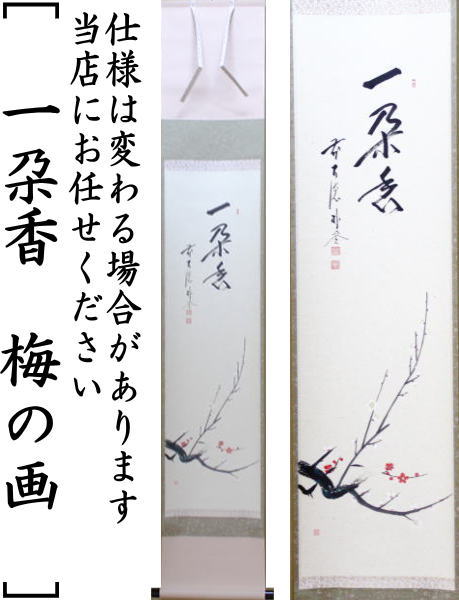 仕様は変わる場合があります
当店にお任せください
[一朶香 梅の画]
一朶香
一朶香